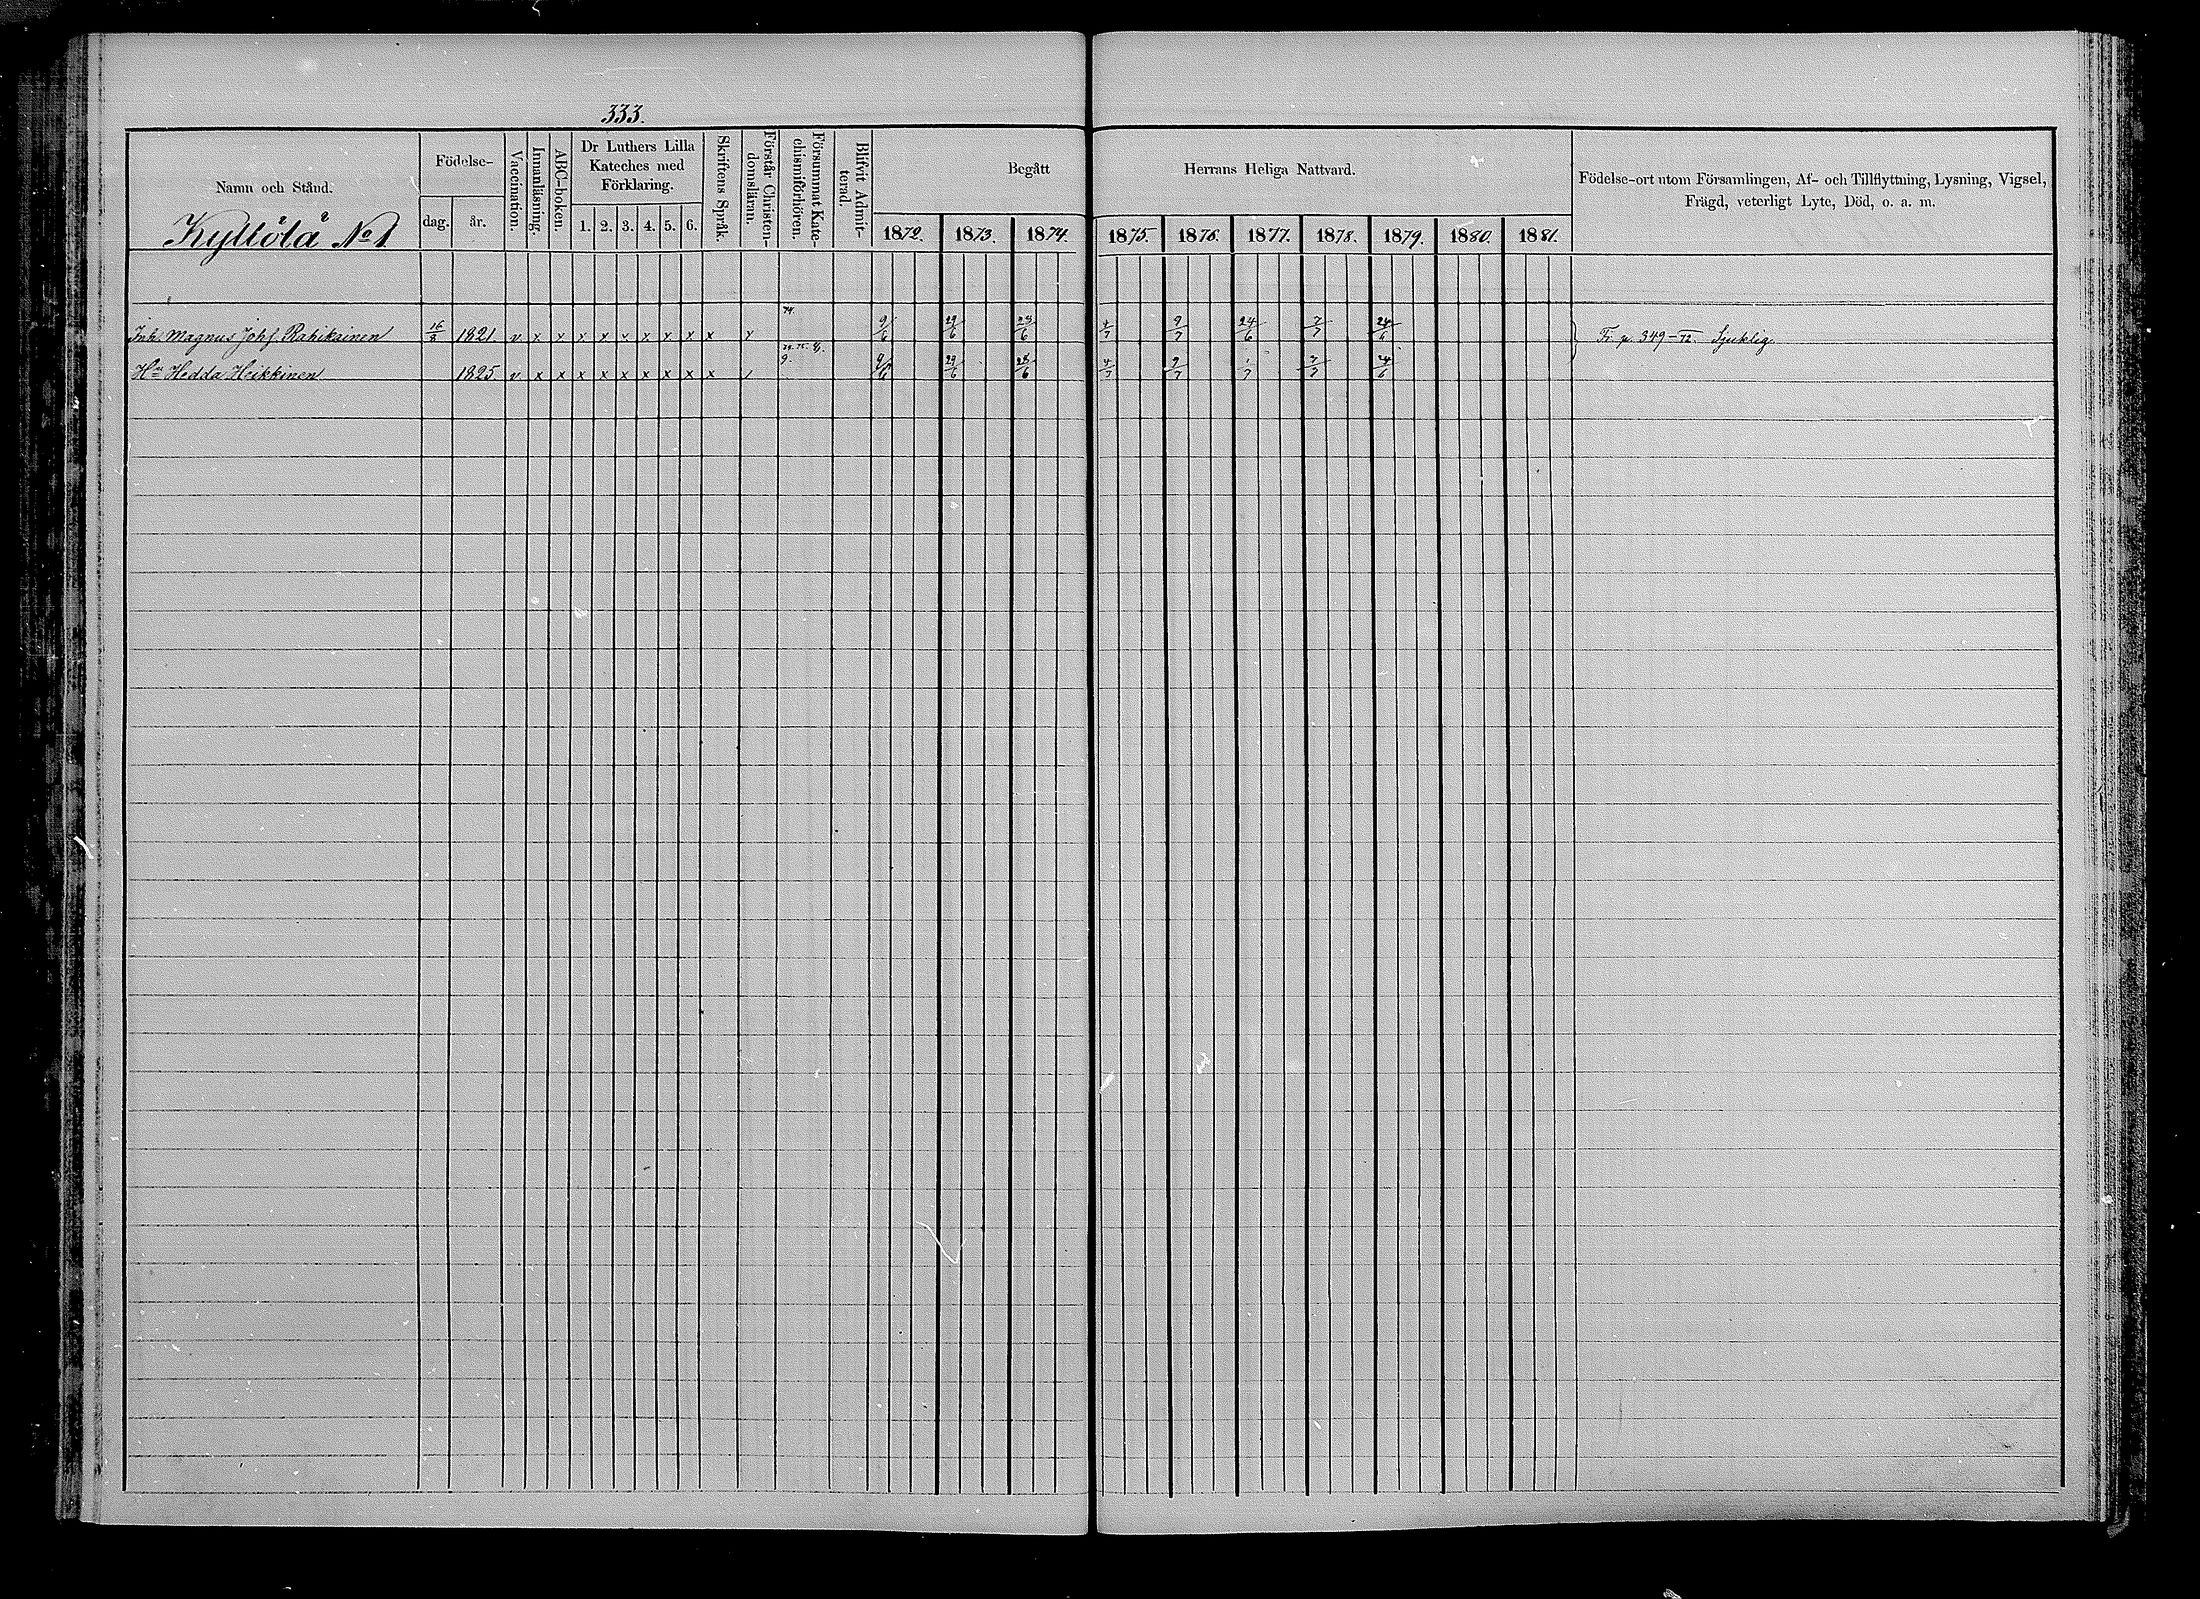 333.
Namn och Stånd.
Kyttölä No 1
Födelse-
dag. år.
Vaccination.
Innanläsning.
ABC-boken.
Dr Luthers Lilla
Kateches med
Förklaring.
1. 2. 3. 4. 5. 6.
Skriftens Språk.
Förstår Christen-
domsläran.
Försummat Kate-
chismiförhören.
Blifvit Admit-
terad.
Begått Herrans Heliga Nattvard.
1872. 1873. 1874. 1875. 1876. 1877. 1878. 1879. 1880. 1881.
Födelse-ort utom Församlingen, Af- och Tillflyttning, Lysning, Vigsel,
Frägd, veterligt Lyte, Död, o. a. m.
Inh. Magnus Johs. Rahikainen 1821. v x x x x x x x x x 9/6 29/6 28/6 4/7 9/7 24/6 7/7 24/6 Fr. p. 349-72. Sjuklig
Hu Hedda Heikkinen 1825. v x x x x x x x x x 9/6 29/6 28/6 4/7 9/7 1/7 7/7 24/6